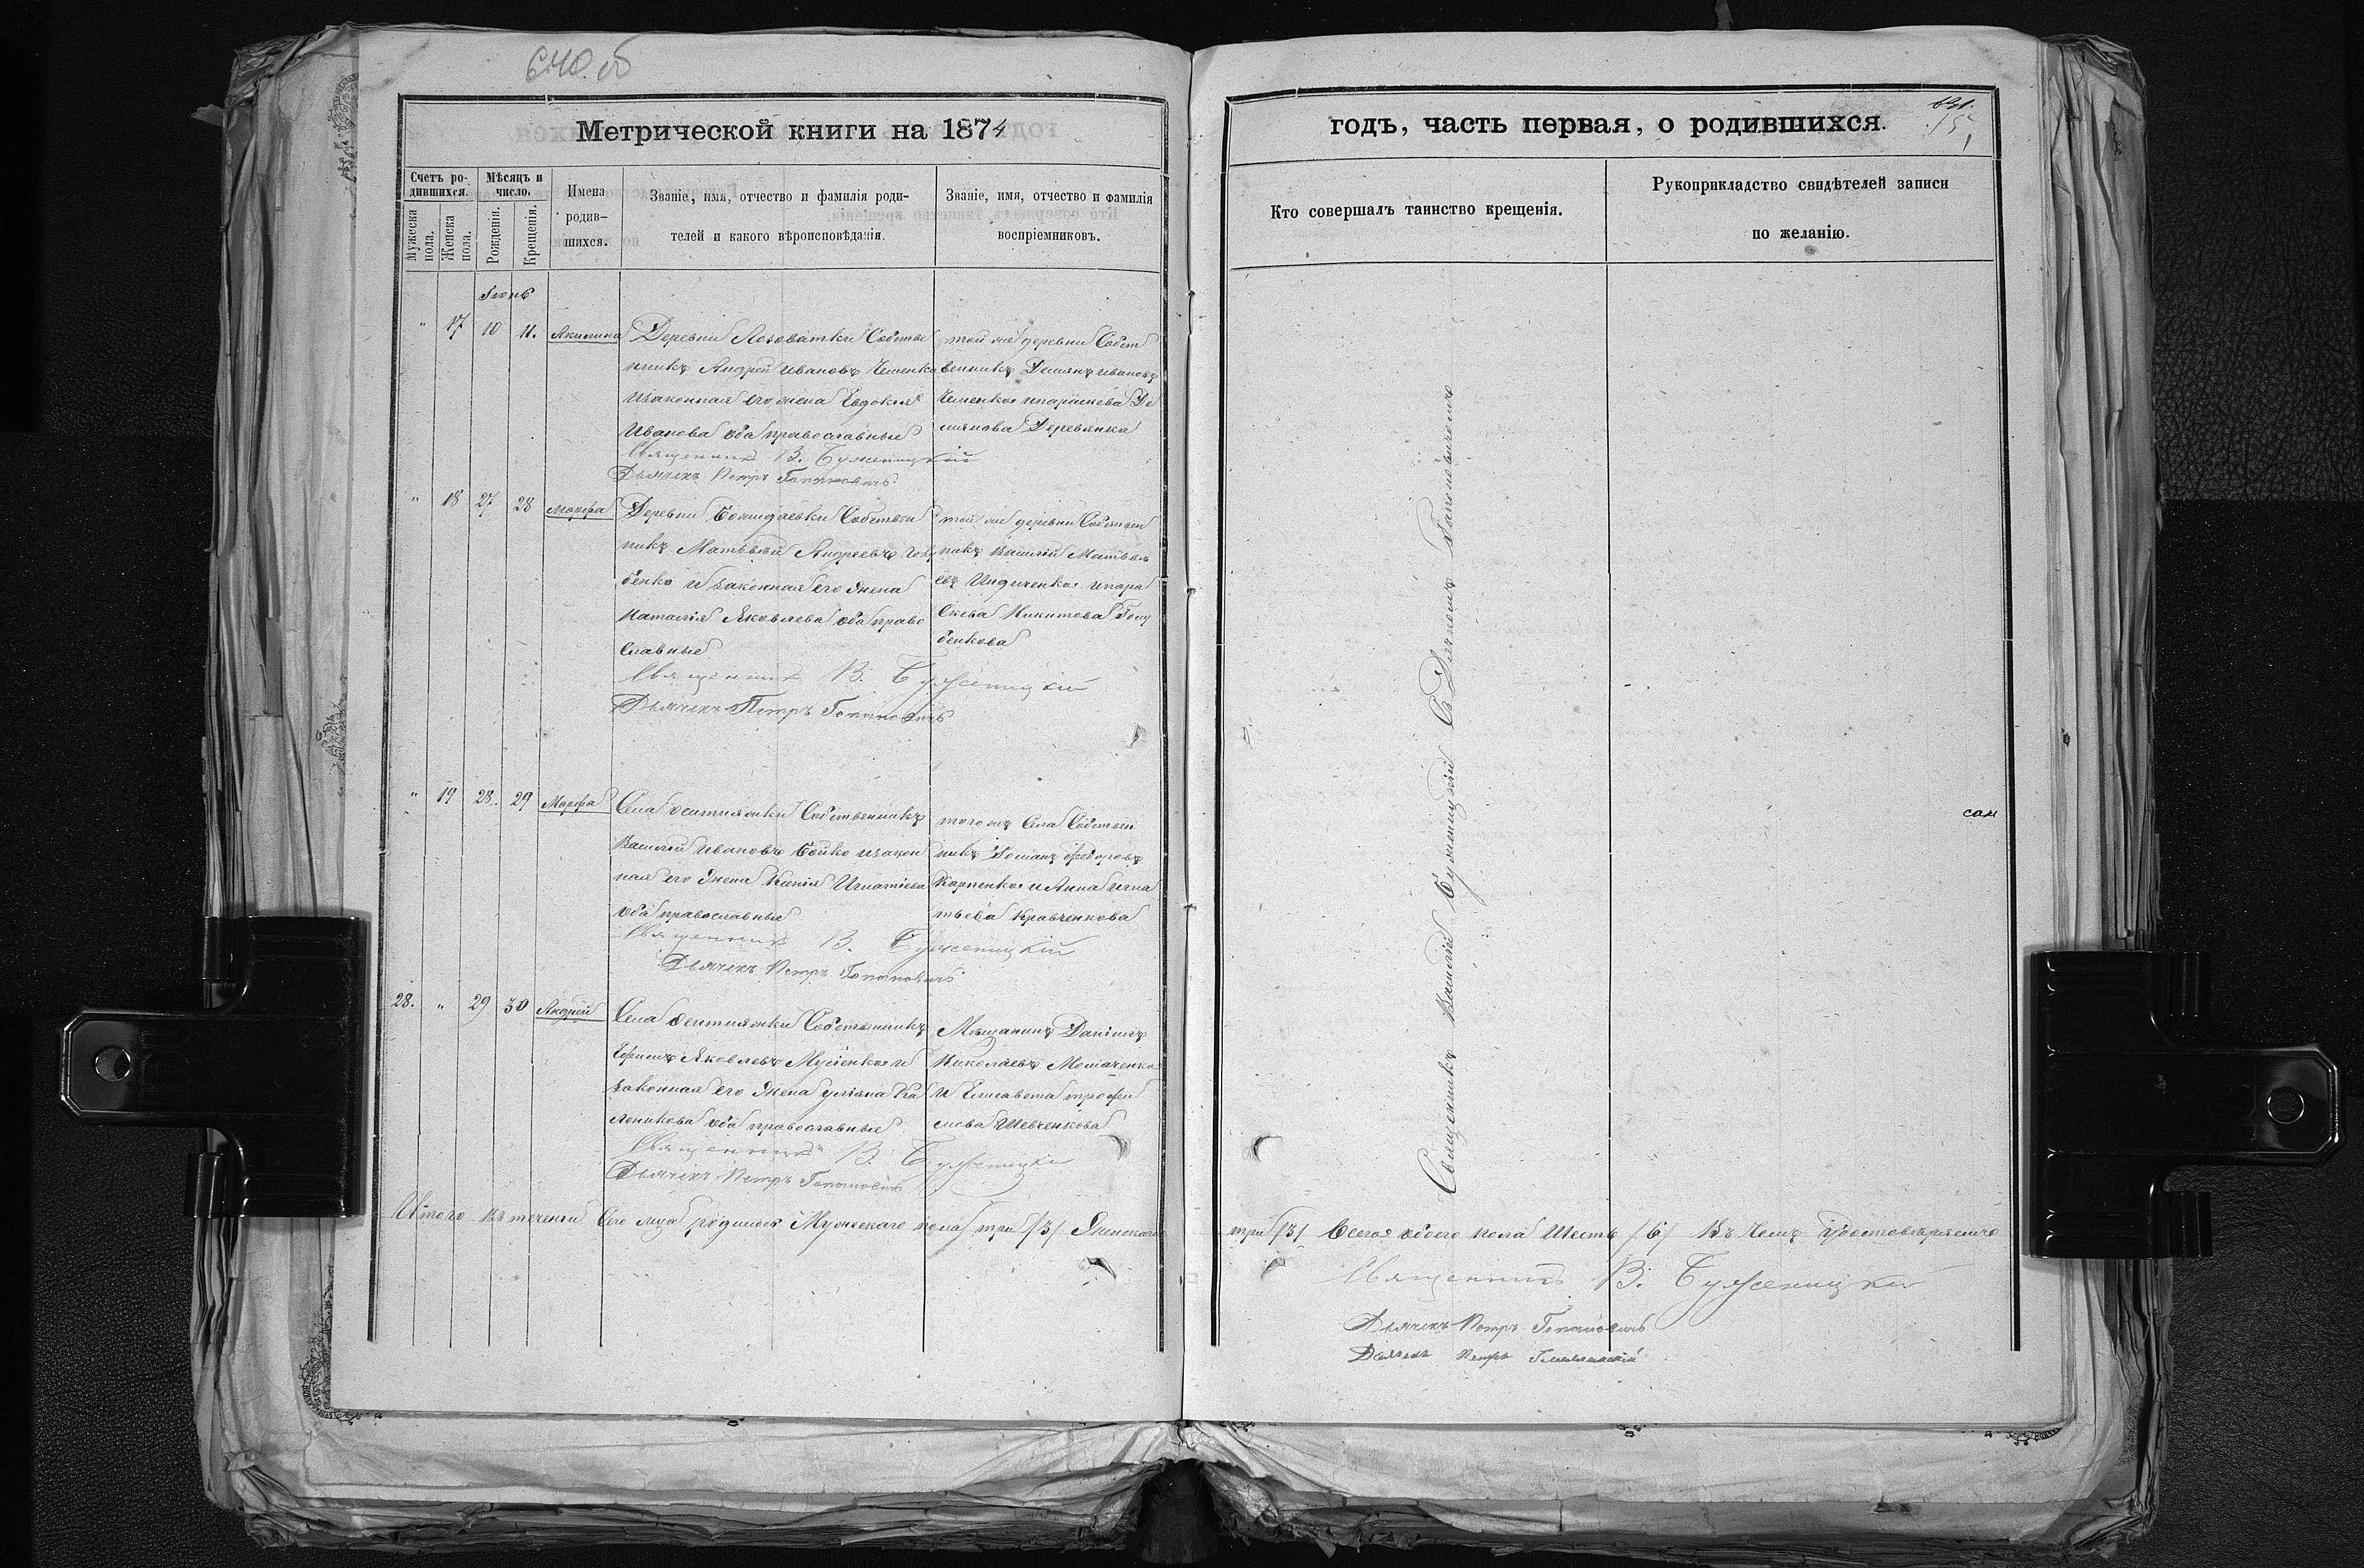 640 об
Метрической книги на 1874
Счетъ ро-
дившихся.
Мѣсяцъ и
число.
Мужеска
пола.
Женска
пола.
Рожденія.
Крещенія.
Имена
родив-
шихся.
Званіе, имя, отчество и фамилія роди-
телей и какого вѣроисповѣданія.
Званіе, имя, отчество и фамилія
воспріемниковъ.
Іюнь
" 17 10 11. Акилина
Деревни Лозоватки Собстве
нникъ Андрей Ивановъ
и законная его жена Евдокія
Иванова оба православные
Священникъ В. Буженицкій
Дьячекъ Петръ
той же деревни Собст
венникъ Демянъ Ивановъ
и параскева Де
миянова Деревянка
" 18 27 28 Марфа
Деревни Собствен
никъ Матвѣй Андреевъ Голу
бенко и законная его жена
Наталія Яковлева оба право
славные
Священникъ В. Буженицкій
Дьячекъ Петръ
той же деревни Собствен
никъ Василій Матвѣе
въ и пара
скева Никитова Голу
бенкова
" 19 28. 29 Марфа
Села Оситняжки Собственникъ
Василій Ивановъ Бойко и закон
ная его жена Ксенія Игнатіева
оба православные
Священникъ В. Буженицкій
Дьячекъ Петръ
того жъ Села Собствен
никъ Романъ Федоровъ
Карпенко и Анна Игна
тьева Кравченкова
28. " 29 30 Андрей
Села Оситняжки Собственникъ
Ефимъ Яковлевъ Мусіенко и
законная его жена Уліяна Ка
леникова оба православные
Священникъ В. Буженицкій
Дьячекъ Петръ
Мѣщанинъ Даніилъ
Николаевъ
и Елисавета трофи
мова Шевченкова
Итого въ теченіи сего мца родилось Мужескаго пола три /3/ Женскаго
годъ, часть первая, о родившихся.
Кто совершалъ таинство крещенія.
Рукоприкладство свидѣтелей записи
по желанію.
Священникъ Василій Буженицкій Съ Дьячкомъ
три /3/ Всего обоего пола Шесть /6/ Въ чемъ удостовѣряемъ
Священникъ В. Буженицкій
Дьячекъ Петръ
Дьячекъ Петръ